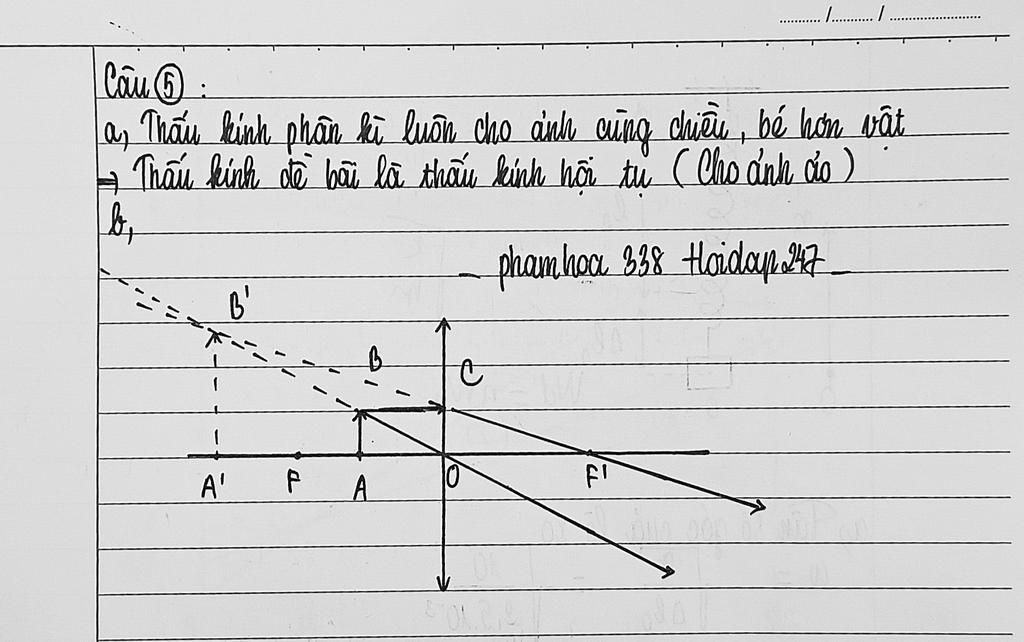 ........../........../......................
Câu 5 :
a, Thấu kính phân kì luôn cho ảnh cùng chiều, bé hơn vật
→ Thấu kính đề bài là thấu kính hội tụ ( Cho ảnh ảo )
b,
- phamhoa 338 Hoidap247 -
B'
B
C
A' F A O F'